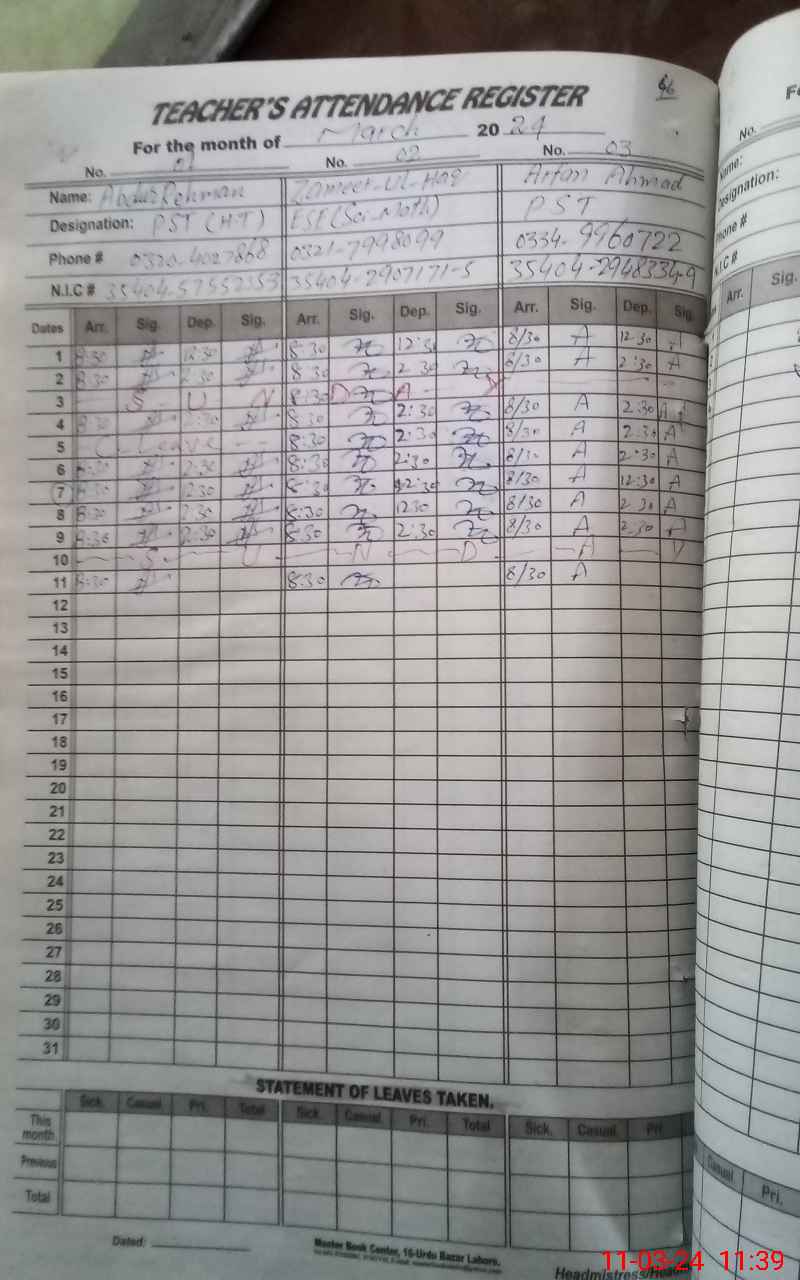 46
TEACHER'S ATTENDANCE REGISTER
For the month of March 2024
No. 01 No. 02 No. 03
Name: Abdul Rehman Zameer-Ul-Haq Arfan Ahmad
Designation: PST (H-T) ESE (Sci-Math) PST
Phone # 0320-4027868 0321-7998099 0334-9960722
N.I.C # 35404-2907171-5 35404-2948334-9
Dates Arr. Sig. Dep. Sig. Arr. Sig. Dep. Sig. Arr. Sig. Dep. Sig.
1 8:30 12:30 8:30 12:30 8/30 A 12:30 A
2 8:30 2:30 8:30 2:30 8/30 A 2:30 A
3 S U N 8:30 D A Y
4 8:30 2:30 8:30 2:30 8/30 A 2:30 A
5 C-Leave 8:30 2:30 8/30 A 2:30 A
6 8:30 2:30 8:30 2:30 8/30 A 2:30 A
7 8:30 2:30 8:30 12:30 8/30 A 12:30 A
8 8:30 2:30 8:30 1230 8/30 A 2:30 A
9 8:30 2:30 8:30 2:30 8/30 A 2:30 A
10 S U N D A Y
11 8:30 8:30 8/30 A
12
13
14
15
16
17
18
19
20
21
22
23
24
25
26
27
28
29
30
31
STATEMENT OF LEAVES TAKEN.
Sick. Casual. Pri. Total Sick. Casual. Pri. Total Sick. Casual. Pri
This month
Previous
Total
Dated:
Master Book Center, 16-Urdu Bazar Lahore.
Headmistress/Head
No.
Name:
Designation:
Phone #
N.I.C #
Arr. Sig.
Casual. Pri.
11-03-24 11:39